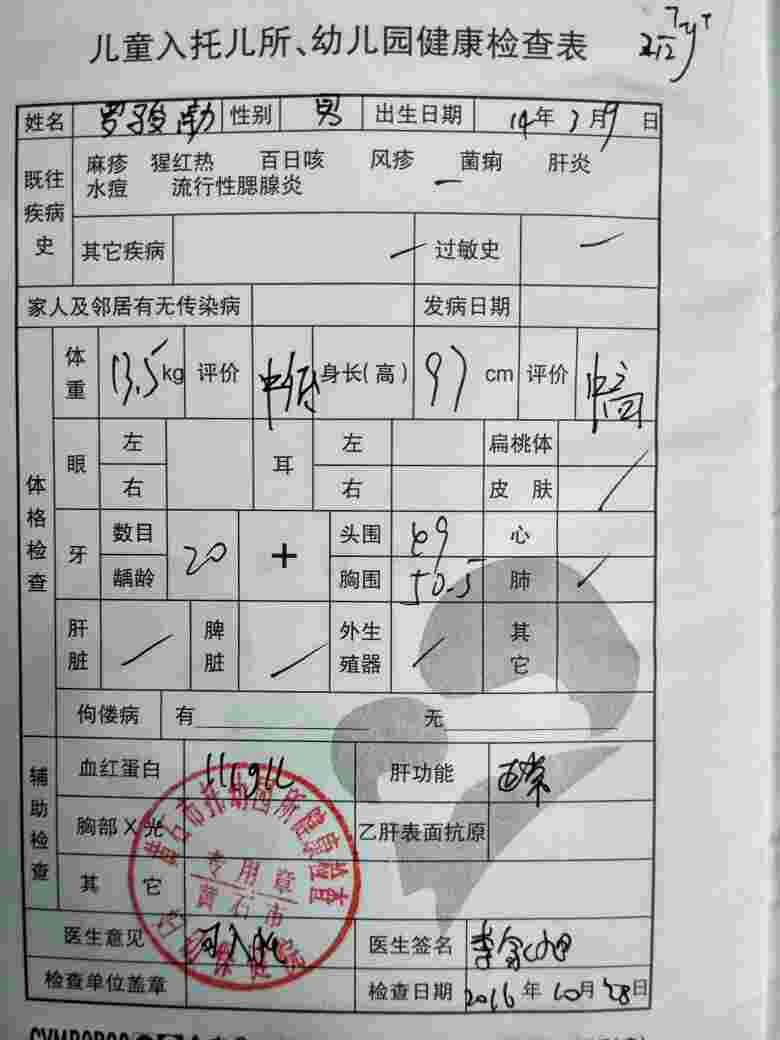 儿童入托儿所、幼儿园健康检查表
姓名 罗骏勋 性别 男 出生日期 14年3月9日
既往疾病史 麻疹 猩红热 百日咳 风疹 菌痢 肝炎
水痘 流行性腮腺炎 一
其它疾病 过敏史 一
家人及邻居有无传染病 发病日期
体格检查
体重 13.5kg 评价 中低 身长(高) 97cm 评价 中高
眼 左 耳 左 扁桃体
右 右 皮肤
牙 数目 20 + 头围 49 心
龋龄 胸围 50.5 肺
肝脏 脾脏 外生殖器 其它
佝偻病 有 无
辅助检查
血红蛋白 111g/L 肝功能 正常
胸部X光 乙肝表面抗原
其它
黄石市托幼园所健康检查
专用章
黄石市
妇幼保健院
医生意见 可入托 医生签名
检查单位盖章 检查日期 2016年10月28日